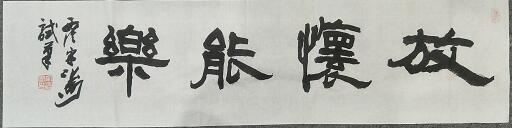 放懷能樂
試筆